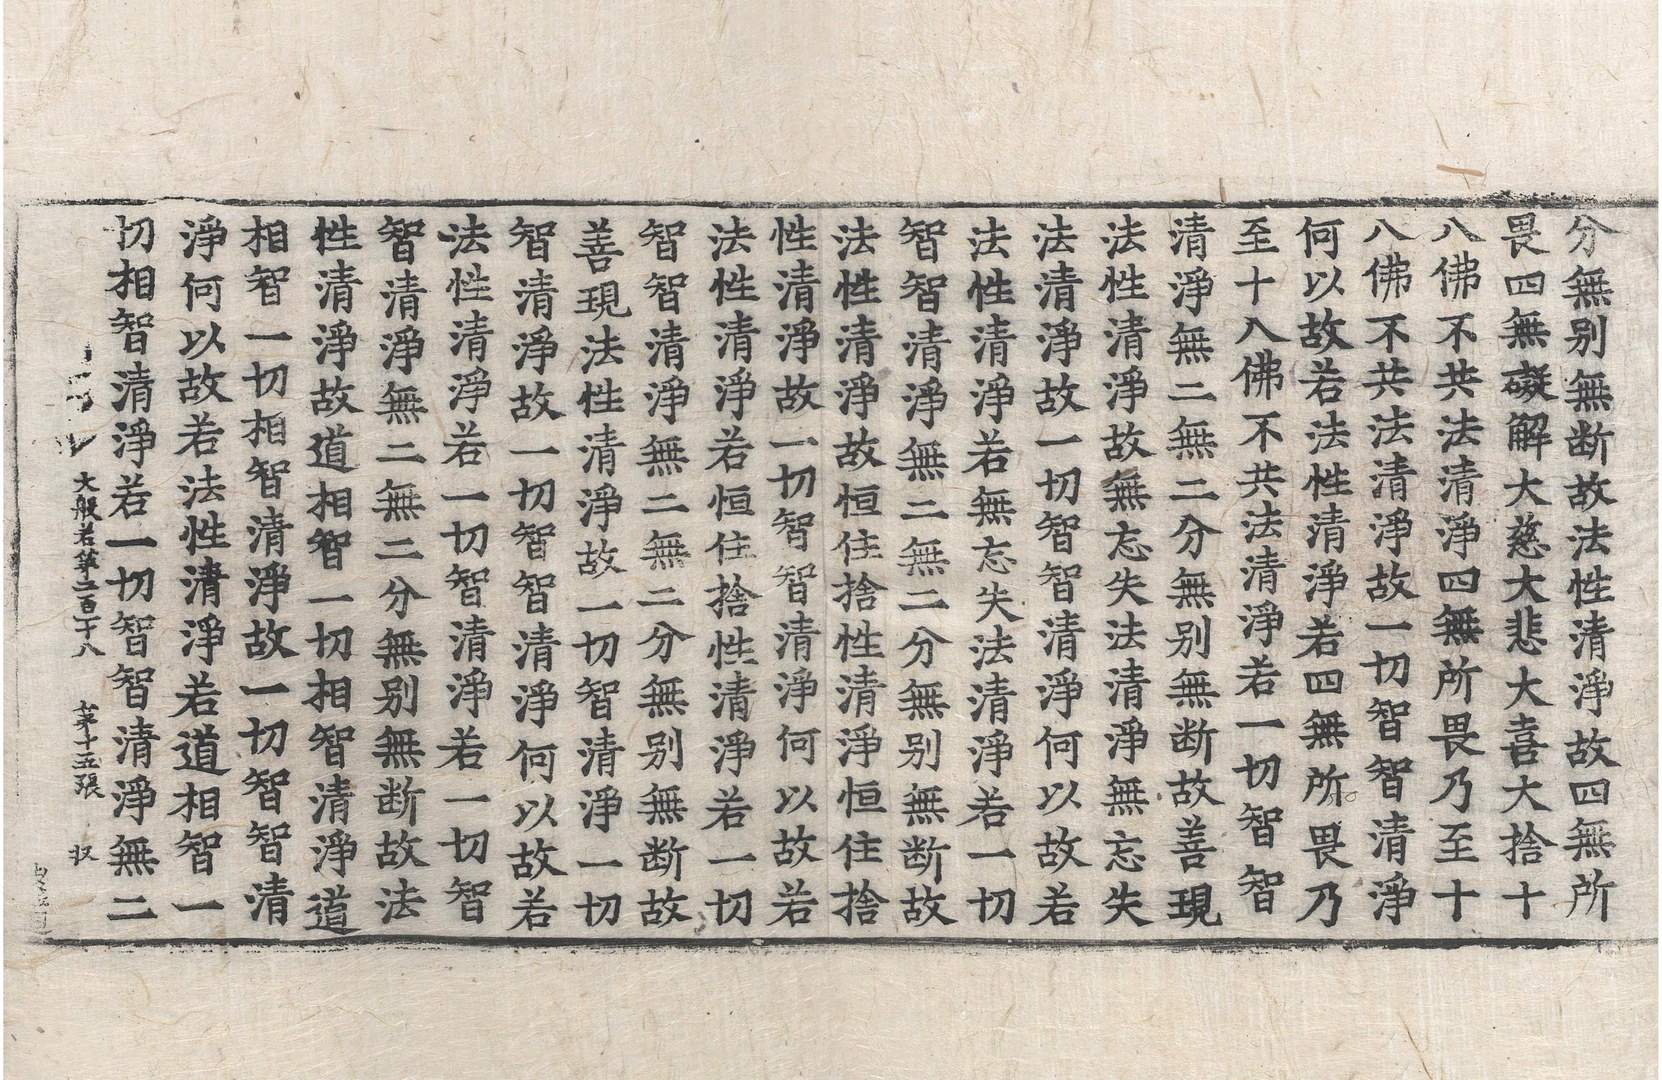 分無別無断故法性清淨故四無所
畏四無礙解大慈大悲大喜大捨十
八佛不共法清淨四無所畏乃至十
八佛不共法清淨故一切智智清淨
何以故若法性清淨若四無所畏乃
至十八佛不共法清淨若一切智智
清淨無二無二分無別無断故善現
法性清淨故無忘失法清淨無忘失
法清淨故一切智智清淨何以故若
法性清淨若無忘失法清淨若一切
智智清淨無二無二分無別無断故
法性清淨故恒住捨性清淨恒住捨
性清淨故一切智智清淨何以故若
法性清淨若恒住捨性清淨若一切
智智清淨無二無二分無別無断故
善現法性清淨故一切智清淨一切
智清淨故一切智智清淨何以故若
法性清淨若一切智清淨若一切智
智清淨無二無二分無別無断故法
性清淨故道相智一切相智清淨道
相智一切相智清淨故一切智智清
淨何以故若法性清淨若道相智一
切相智清淨若一切智智清淨無二
大般若第二百十八 第十五張 収